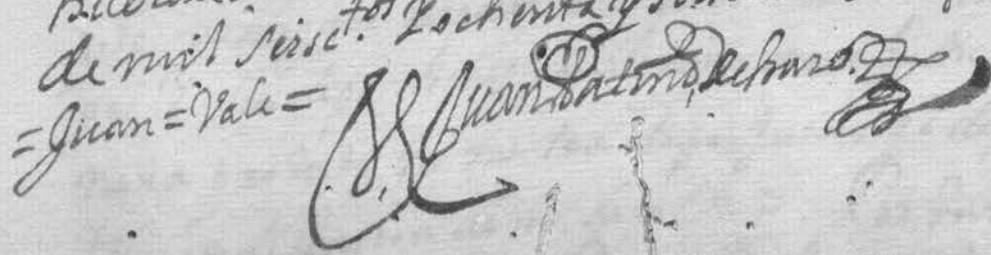 de mil seisc.tos y ochenta y
=Juan=Vale= Juan Patino de haro